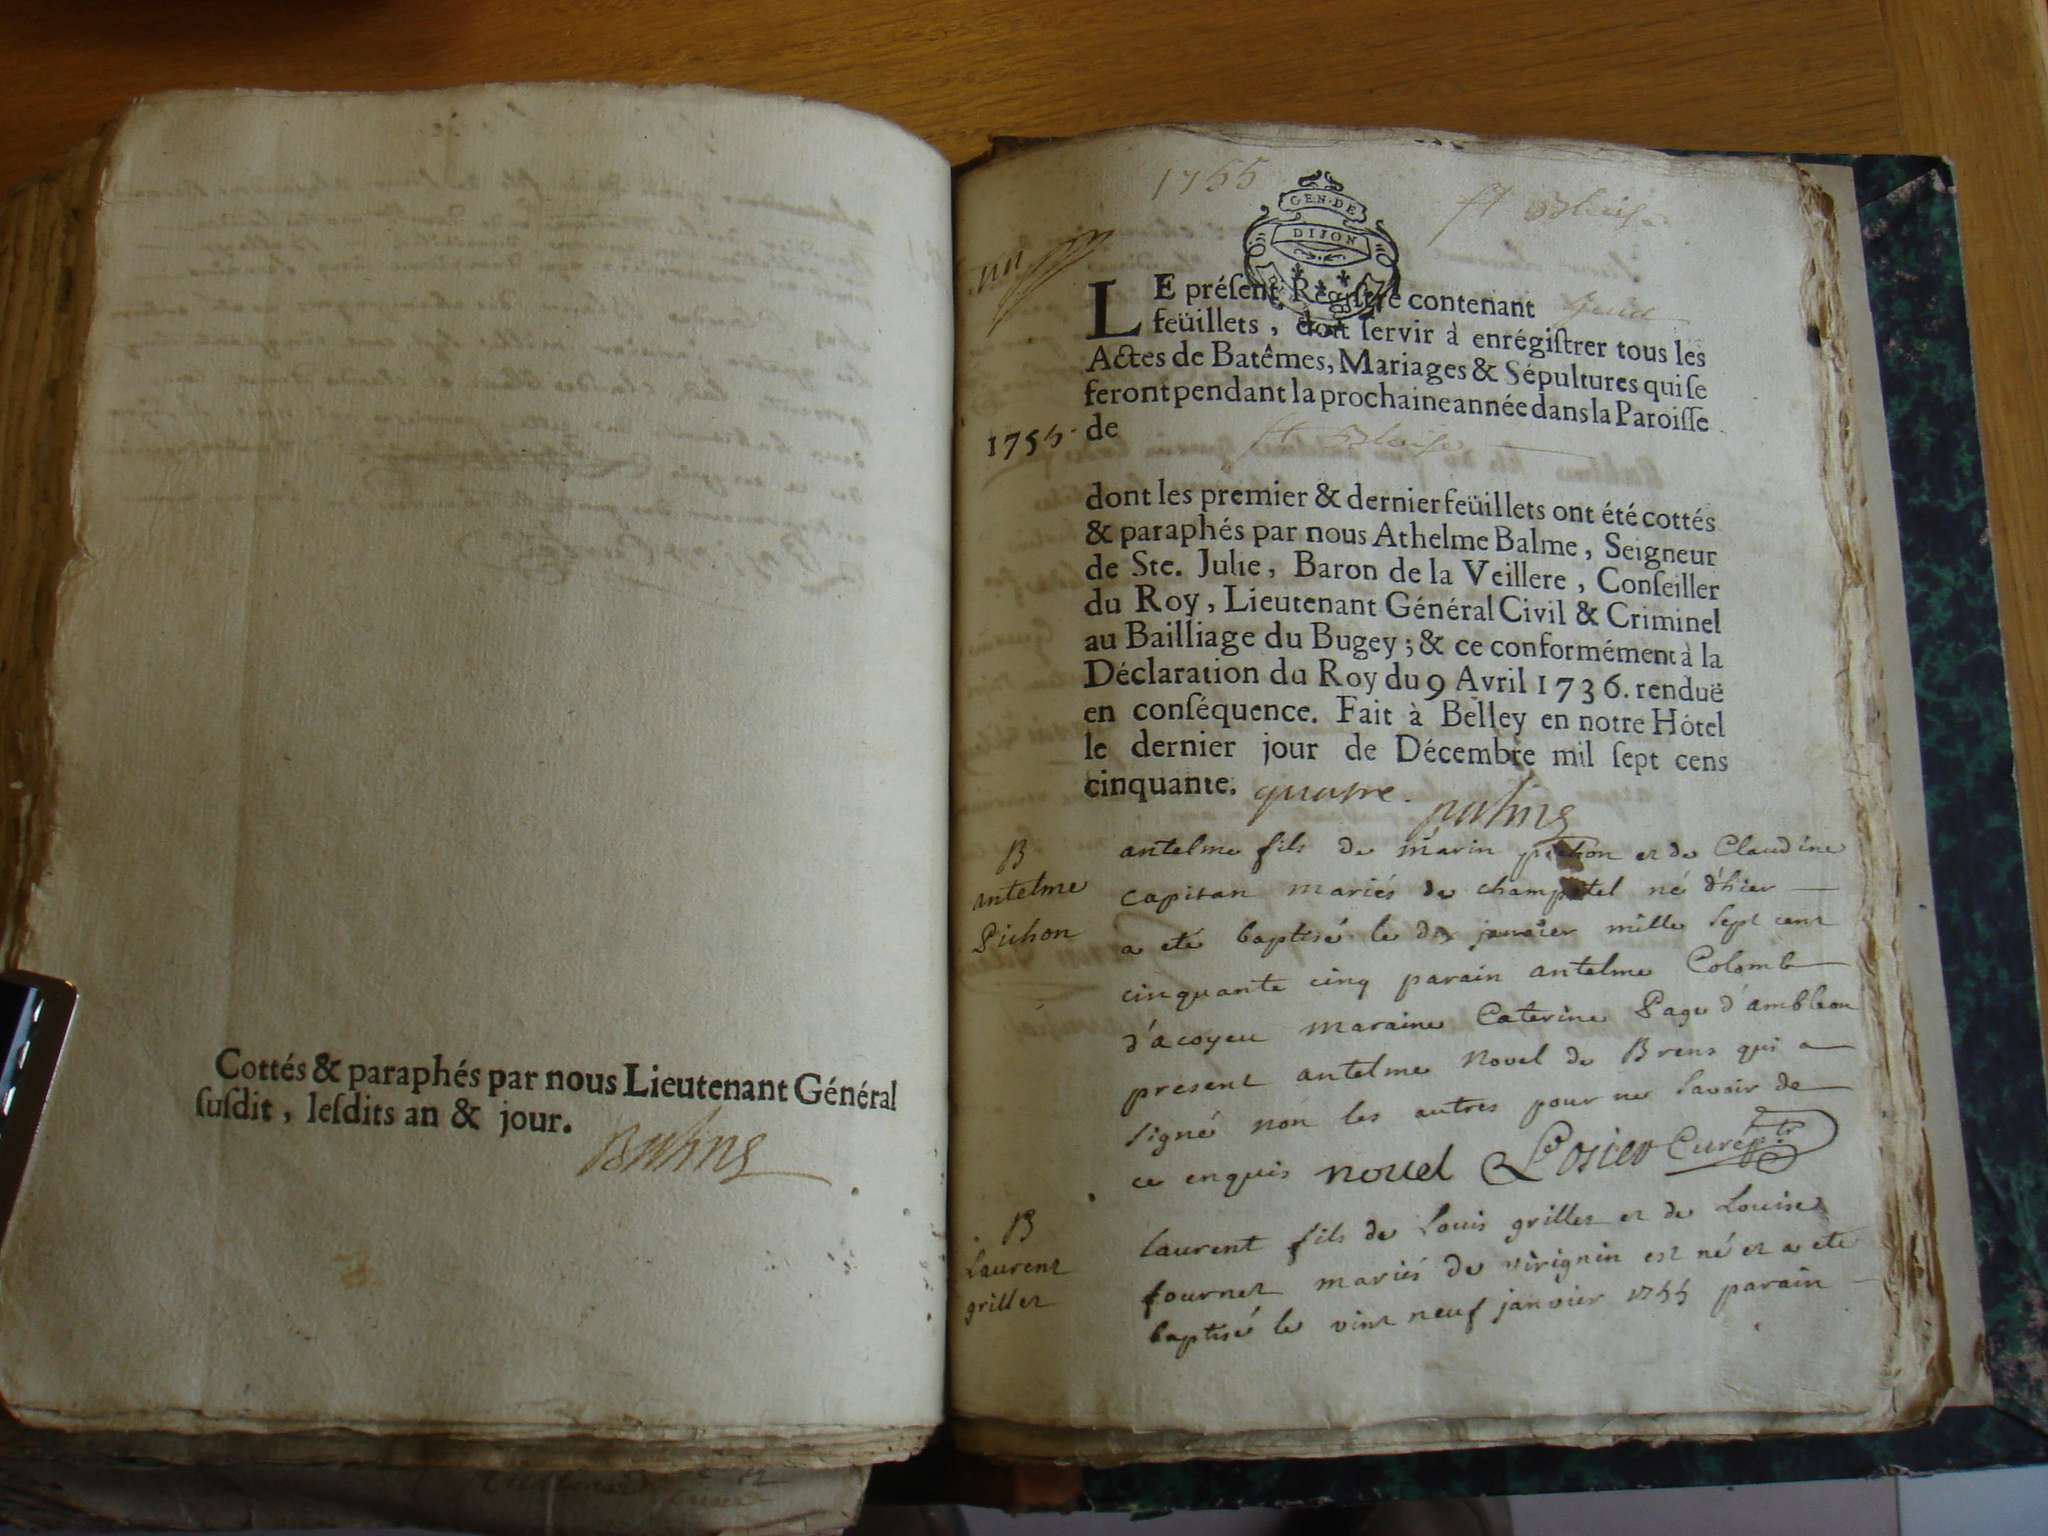 Cottés & paraphés par nous Lieutenant Général
ſuſdit, leſdits an & jour.
1755
GEN·DE
DIJON
st Blaise
LE préſent Regiſtre contenant
feüillets, doit ſervir à enrégiſtrer tous les
Actes de Batêmes, Mariages & Sépultures qui ſe
feront pendant la prochaine année dans la Paroiſſe
1755. de st Blaise
dont les premier & dernier feüillets ont été cottés
& paraphés par nous Athelme Balme, Seigneur
de Ste. Julie, Baron de la Veillere, Conſeiller
du Roy, Lieutenant Général Civil & Criminel
au Bailliage du Bugey; & ce conformément à la
Déclaration du Roy du 9 Avril 1736. renduë
en conſéquence. Fait à Belley en notre Hôtel
le dernier jour de Décembre mil ſept cens
cinquante. quatre.
B
antelme
Pichon
antelme fils de marin pichon et de Claudine
capitan mariés de champtel né d'hier
a eté baptisé le dix janvier mille sept cent
cinquante cinq parain antelme Colomb
d'acoyeu maraine Caterine Page d'ambleon
present antelme novel de Brens qui a
signé non les autres pour ne savoir de
ce enquis novel Losier Curé
B
Laurent
grillet
laurent fils de Louis grillet et de Louise
fournet mariés de virignin est né et a eté
baptisé le vint neuf janvier 1755 parain